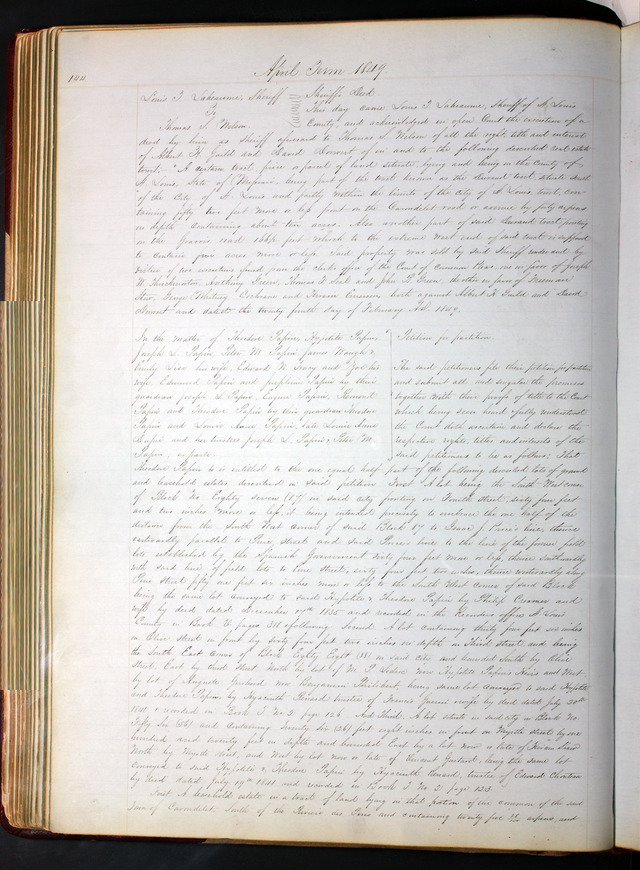 144
April Term 1849
Louis T. Labeaume, Sheriff
To
Thomas S. Nelson
Sheriff's Deed
This day came Louis T. Labeaume, Sheriff of St. Louis
County and acknowledged in open Court the execution of a
deed by him as Sheriff aforesaid to Thomas S. Nelson of all the right title and interest
of Albert H. Guild and David of in and to the following described real estate
towit: A certain tract piece or parcel of land situate lying and being in the County of
St. Louis, State of Missouri, being part of the tract known as the tract situate South
of the City of St. Louis and partly within the limits of the City of St. Louis towit, con-
taining fifty two feet more or less front on the Carondelet road or avenue by forty arpens
in depth containing about ten acres. Also another part of said tract fronting
on the Gravois road feet which to the extreme west end of said tract is supposed
to contain five acres more or less. Said property was sold by said Sheriff under and by
virtue of two executions issued from the clerks office of the Court of Common Pleas, one in favor of Joseph
N. Anthony Green, Thomas T. and John P. Green, the other in favor of Freeman
George Whitney Cochrane and both against Albert H. Guild and David
and dated the twenty fourth day of February A.D. 1849.
In the matter of Theodore Papin, Hypolite Papin,
Joseph L. Papin, Peter M. Papin, James Waugh &
Emily his wife, Edward W. and Zoe his
wife, Edmund Papin and Papin by their
guardian Joseph L. Papin, Eugene Papin, Bernard
Papin and Theodore Papin by their guardian Theodore
Papin and Louisa Anne Papin, late Louisa Anne
and her trustees Joseph L. Papin & Peter M.
Papin, ex parte.
Petition for partition
The said petitioners file their petition for partition
and submit all and singular the premises
together with their proofs of title to the Court
which being seen heard & fully understood
the Court doth ascertain and declare the
respective rights, titles and interests of the
said petitioners to be as follows: That
Theodore Papin is entitled to the one equal half part of the following described lots of ground
and leasehold estates described in said petition First. A lot being the South West corner
of Block No Eighty seven (87) in said city fronting on Fourth Street, sixty four feet
and two inches more or less, it being intended precisely to embrace the one half of the
distance from the South West corner of said Block 87 to line, thence
eastwardly parallel to Pine, street and said line to the line of the former field
lots established by the Spanish Government sixty feet more or less, thence southwardly
with said line of field lots to Pine Street, sixty four feet two inches, thence westwardly along
Pine Street fifty feet six inches more or less to the South West corner of said Block
being the same lot conveyed to said Hypolite & Theodore Papin by Philip Creamer and
wife by deed dated December 19th 1835 and recorded in the Recorders office St. Louis
County in Book pages 318 & following. Second. A lot containing thirty five feet six inches
on Olive street in front by sixty four feet two inches in depth on Third Street, and being
the South East corner of Block Eighty Eight (88) in said city and bounded South by Olive
Street East by third Street North by lot of now Hypolite Papins Heirs and West
by lot of Auguste now Benjamin Philibert, being same lot conveyed to said Hypolite
and Theodore Papin by Hyacinth Renard trustee of Francis & wife by deed dated July 20th
1841 & recorded in Book T No. 2 page 126 And Third. A lot situate in said city in Block No
Fifty Six (56) and containing Twenty Six (26) feet eight inches in front on Myrtle Street by one
hundred and twenty feet in depth and bounded East by a lot now or late of
North by Myrtle Street, and West by lot now or late of Vincent being the same lot
conveyed to said Hypolite & Theodore Papin by Hyacinth Renard, trustee of Edward
by deed dated July 19th 1841 and recorded in Book T No. 2 page 123
First. A leasehold estate in a tract of land lying in that portion of the common of the said
town of Carondelet, South of the River des Peres and containing twenty five arpens, and